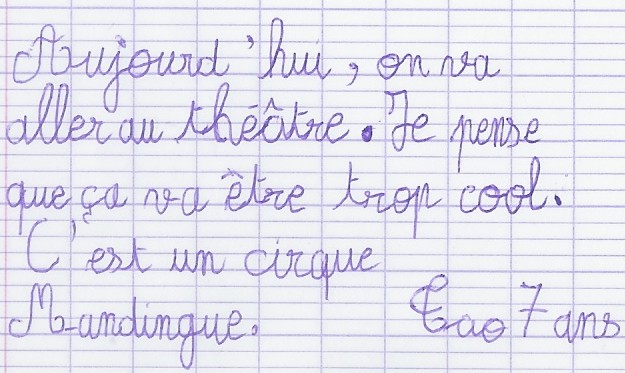 Aujourd'hui, on va
aller au théâtre. Je pense
que ça va être trop cool.
C'est un cirque
Mandingue.
Tao 7 ans